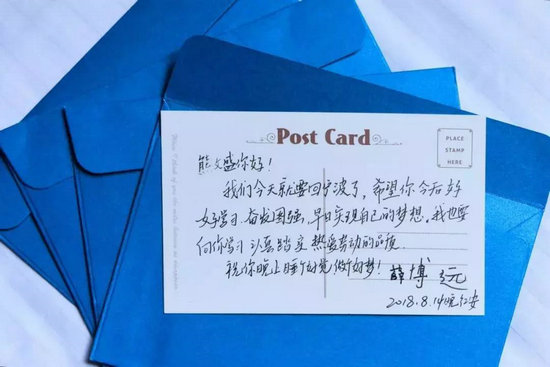 Post Card
PLACE
STAMP
HERE
熊文盛你好!
我们今天就要回宁波了,希望你今后好
好学习 奋发图强,早日实现自己的梦想。我也要
向你学习 认真踏实 热爱劳动的品质
祝你晚上睡个好觉 做个好梦!
薛博远
2018.8.14晚红安